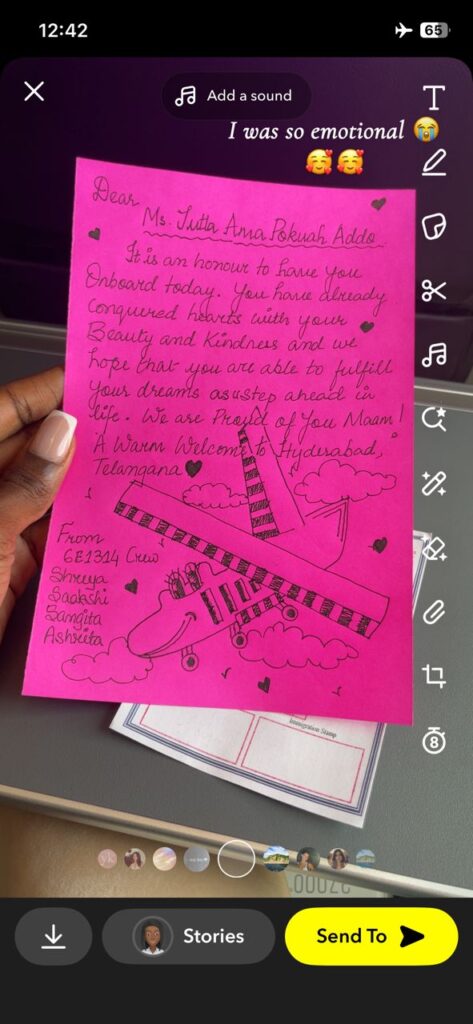 12:42
65
Add a sound
I was so emotional 😭
🥰🥰
Dear
Ms. Jutta Ama Pokuah Addo
It is an honour to have you
Onboard today. You have already
conquired hearts with your
Beauty and Kindness and we
hope that you are able to fulfill
your dreams as u step ahead in
life. We are Proud of You Maam!
A Warm Welcome to Hyderabad,
Telangana
From
6E1314 Crew
Shreya
Saakshi
Sangita
Ashrita
Immigration Stamp
8
Stories
Send To